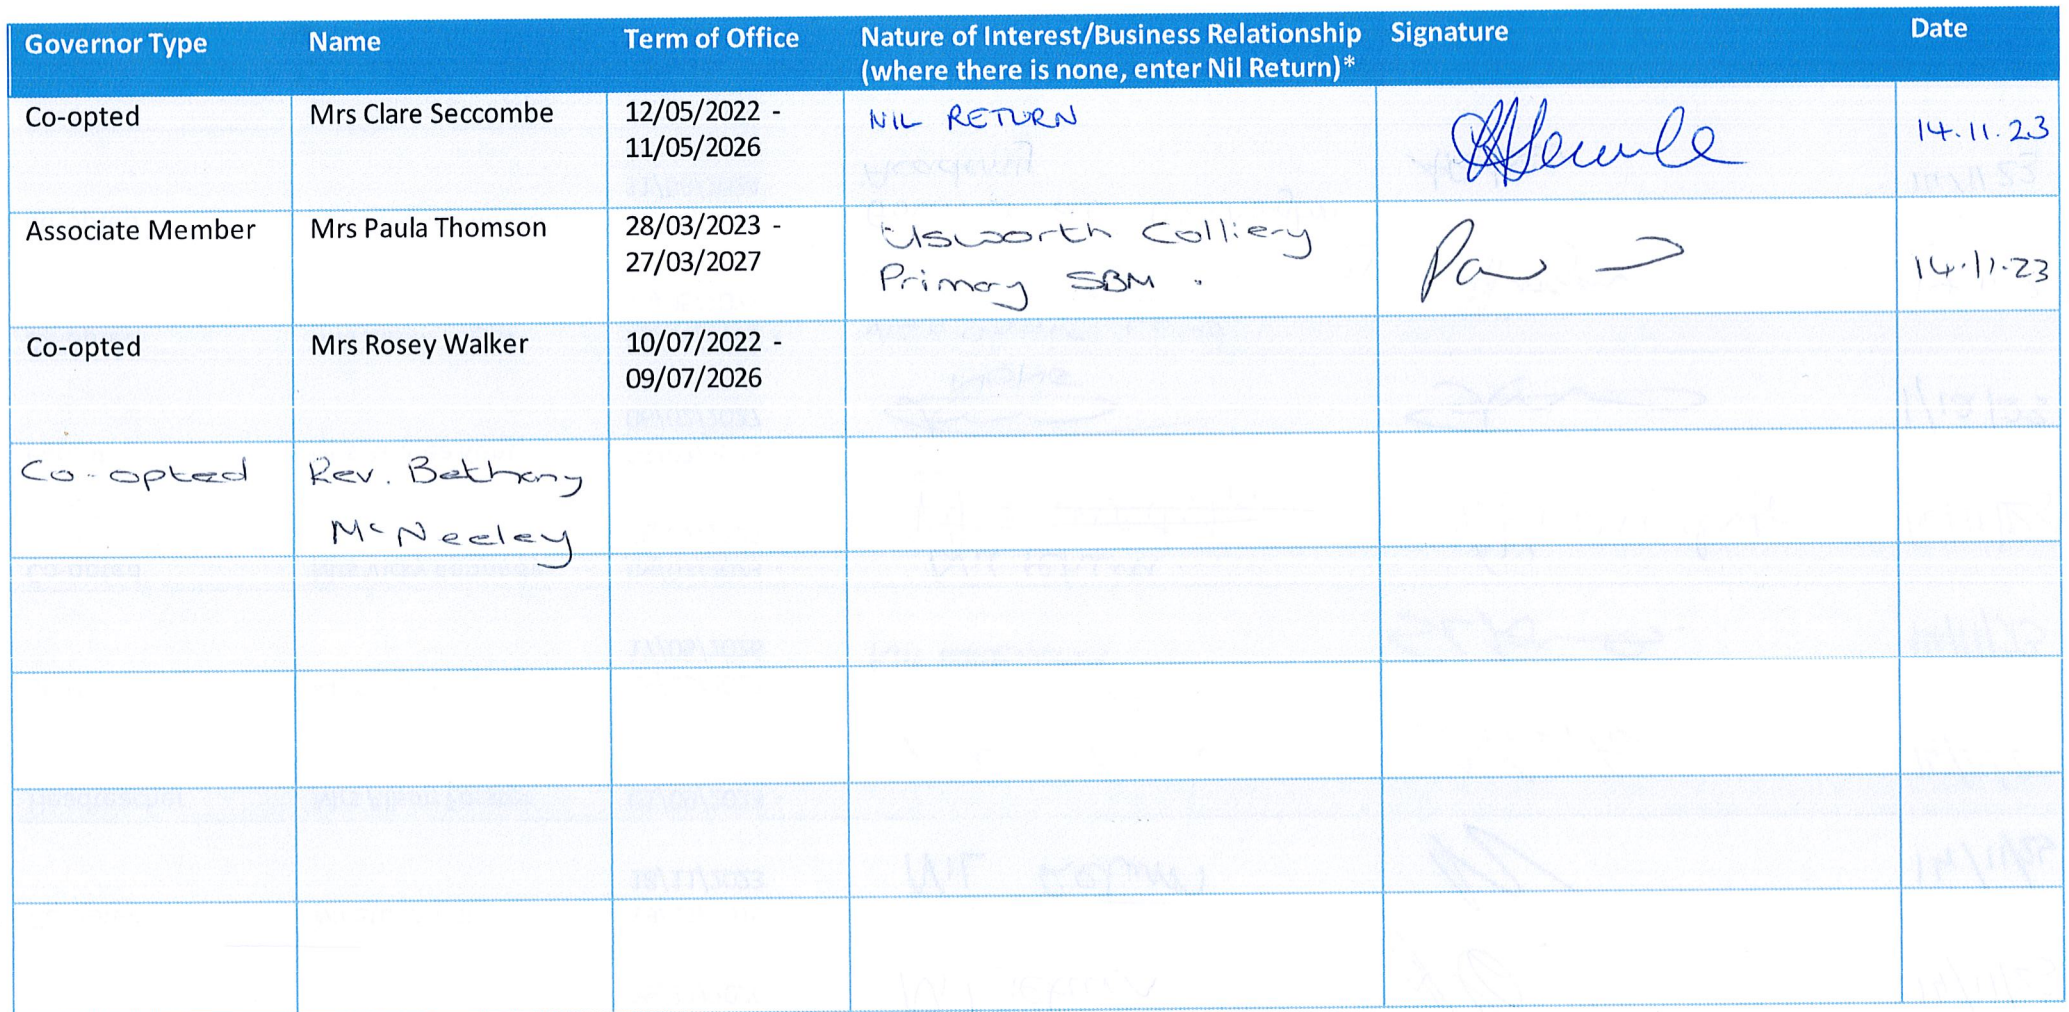 Governor Type Name Term of Office Nature of Interest/Business Relationship Signature Date
(where there is none, enter Nil Return)*
Co-opted Mrs Clare Seccombe 12/05/2022 - NIL RETURN 14.11.23
11/05/2026
Associate Member Mrs Paula Thomson 28/03/2023 - Usworth Colliery
27/03/2027 Primary SBM . 14.11.23
Co-opted Mrs Rosey Walker 10/07/2022 -
09/07/2026
Co-opted Rev. Bethany
McNeeley